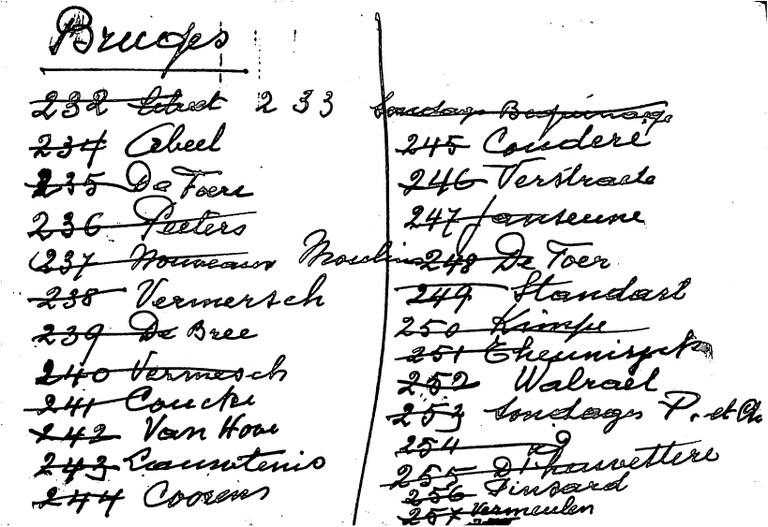 Bruges
232 233 Sondage Beguinage
234 Abeel
235 De Foere
236 Peeters
237 Nouveaux Moulins
238 Vermersch
239 De Bree
240 Vermesch
241 Coucke
242 Van Hove
243
244 Coosens
245 Couderé
246 Verstraete
247 Janseune
248 De Foer
249 Standart
250 Kimpe
251
252 Walrael
253 Sondages P. et Ch.
254
255 D'hauvettere
256 Pinsard
257 Vermeulen